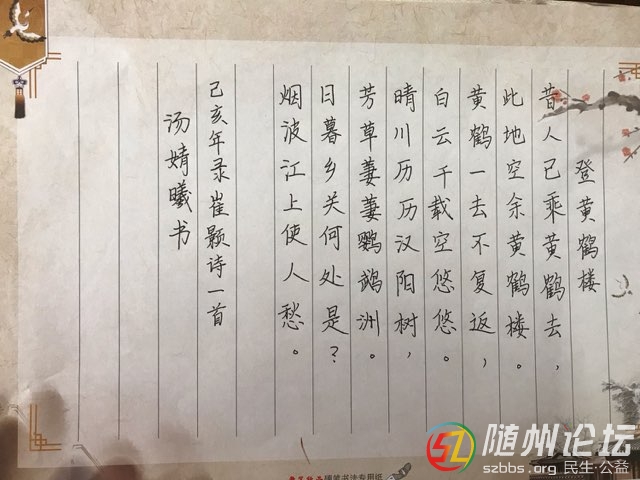 登黄鹤楼
昔人已乘黄鹤去，
此地空余黄鹤楼。
黄鹤一去不复返，
白云千载空悠悠。
晴川历历汉阳树，
芳草萋萋鹦鹉洲。
日暮乡关何处是？
烟波江上使人愁。
己亥年录崔颢诗一首
汤婧曦书
随笔书法专用纸
随州论坛
szbbs.org 民生·公益